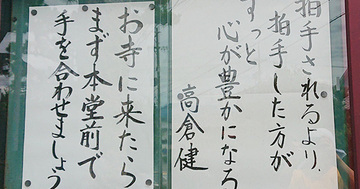 拍手されるより、
拍手した方が
ずっと
心が豊かになる
高倉健
お寺に来たら
まず本堂前で
手を合わせましょう